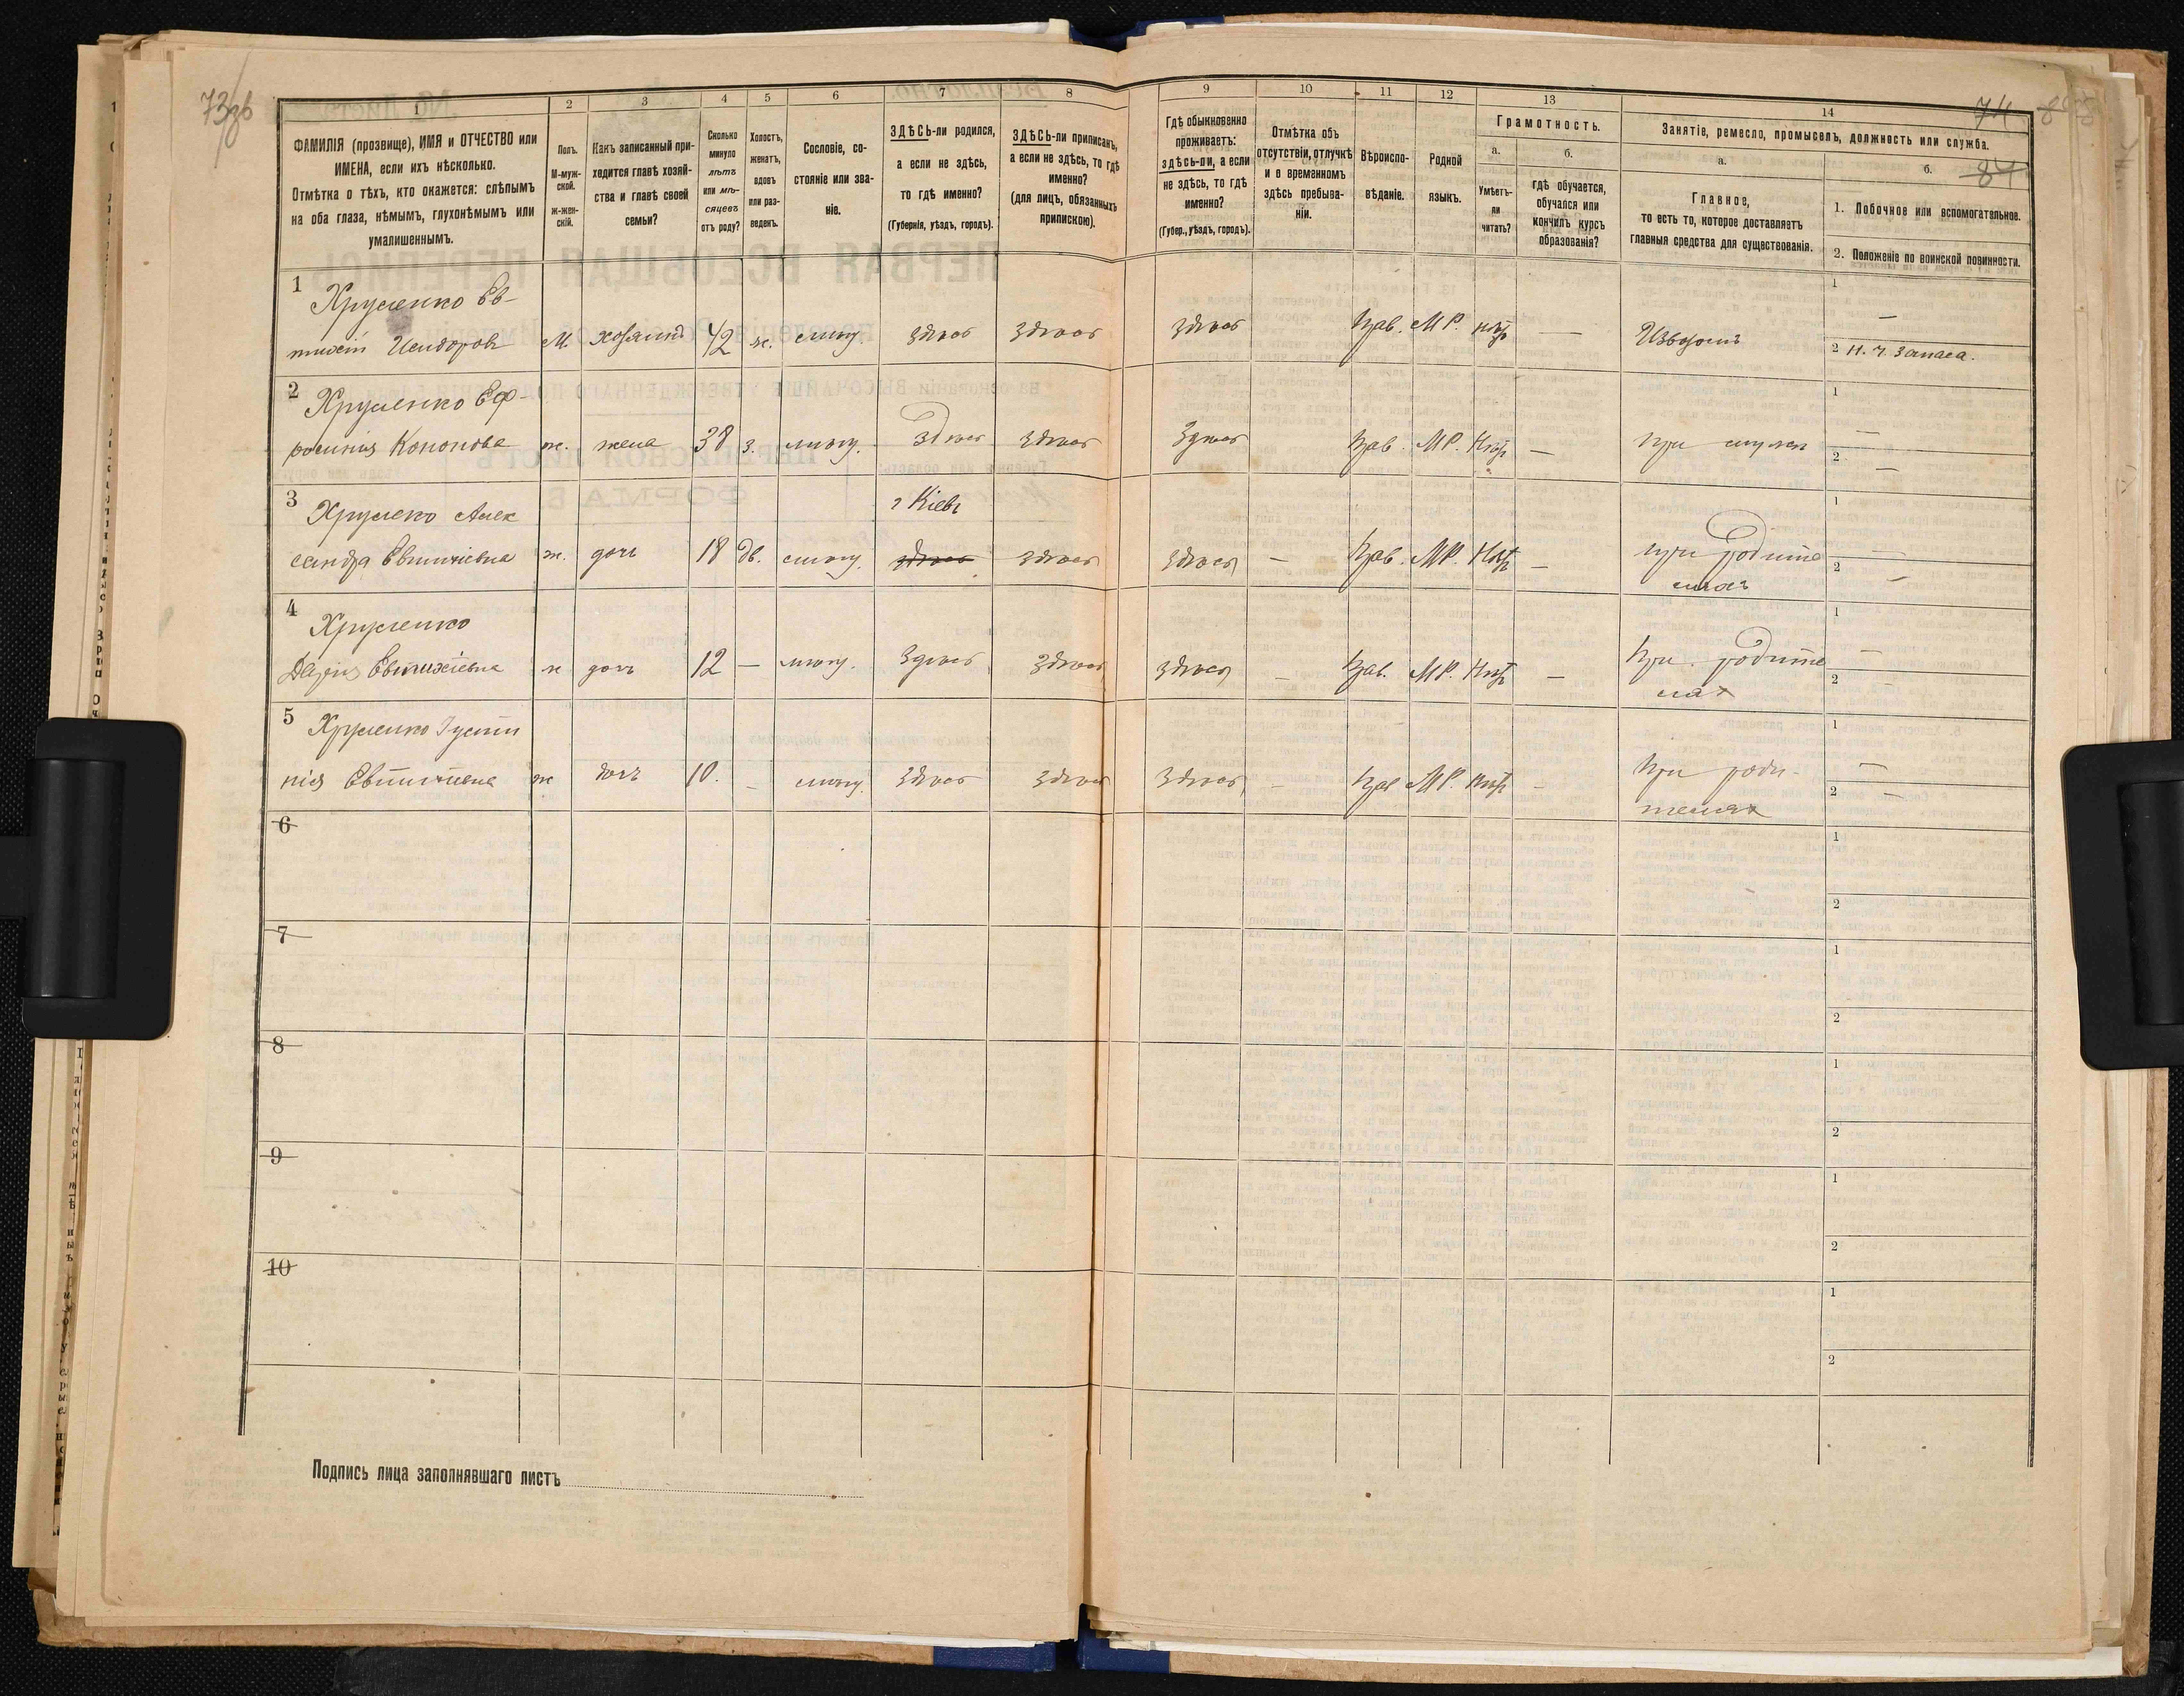 73зв
74
84
1 2 3 4 5 6 7 8 9 10 11 12 13 14
ФАМИЛІЯ (прозвище), ИМЯ и ОТЧЕСТВО или
ИМЕНА, если ихъ нѣсколько.
Отмѣтка о тѣхъ, кто окажется: слѣпымъ
на оба глаза, нѣмымъ, глухонѣмымъ или
умалишеннымъ.
Полъ.
М-муж-
ской.
ж-жен-
скій.
Какъ записанный при-
ходится главѣ хозяй-
ства и главѣ своей
семьи?
Сколько
минуло
лѣтъ
или мѣ-
сяцевъ
отъ роду?
Холостъ,
женатъ,
вдовъ
или раз-
веденъ.
Сословіе, со-
стояніе или зва-
ніе.
ЗДѢСЬ-ли родился,
а если не здѣсь,
то гдѣ именно?
(Губернія, уѣздъ, городъ).
ЗДѢСЬ-ли приписанъ,
а если не здѣсь, то гдѣ
именно?
(для лицъ, обязанныхъ
припискою).
Гдѣ обыкновенно
проживаетъ:
здѣсь-ли, а если
не здѣсь, то гдѣ
именно?
(Губер., уѣздъ, городъ).
Отмѣтка объ
отсутствіи, отлучкѣ
и о временномъ
здѣсь пребыва-
ніи.
Вѣроиспо-
вѣданіе.
Родной
языкъ.
Грамотность.
а.
Умѣетъ-
ли
читать?
б.
гдѣ обучается,
обучался или
кончилъ курсъ
образованія?
Занятіе, ремесло, промыселъ, должность или служба.
а.
Главное,
то есть то, которое доставляетъ
главныя средства для существованія.
б.
1. Побочное или вспомогательное.
2. Положеніе по воинской повинности.
1 Хруленко Ев-
тихій Исидоровъ М. хозяинъ 42 ж. здѣсь здѣсь здѣсь Прав. МР. нѣтъ — Извозомъ
1 —
2 н. ч. запаса.
2 Хруленко Еф-
росинія Кононова ж. жена 38 з. здѣсь здѣсь здѣсь Прав. МР. Нѣтъ — при мужѣ
1 —
2 —
3 Хруленко Алек
г Кіевъ
сандра Евтихіевна ж. дочь 18 дв. здѣсь здѣсь здѣсь — Прав. МР. Нѣтъ — при родите
ляхъ
1 —
2 —
4 Хруленко
Дарія Евтихіевна ж дочь 12 — здѣсь здѣсь здѣсь — Прав. МР. Нѣтъ — при родите
лях
1 —
2 —
5 Хруленко Іусти
нія Евтихіевна ж дочь 10. — здѣсь здѣсь здѣсь — Прав МР. Нѣтъ — при роди-
телях
1 —
2 —
6
1
2
7
1
2
8
1
2
9
1
2
10
1
2
Подпись лица заполнявшаго листъ